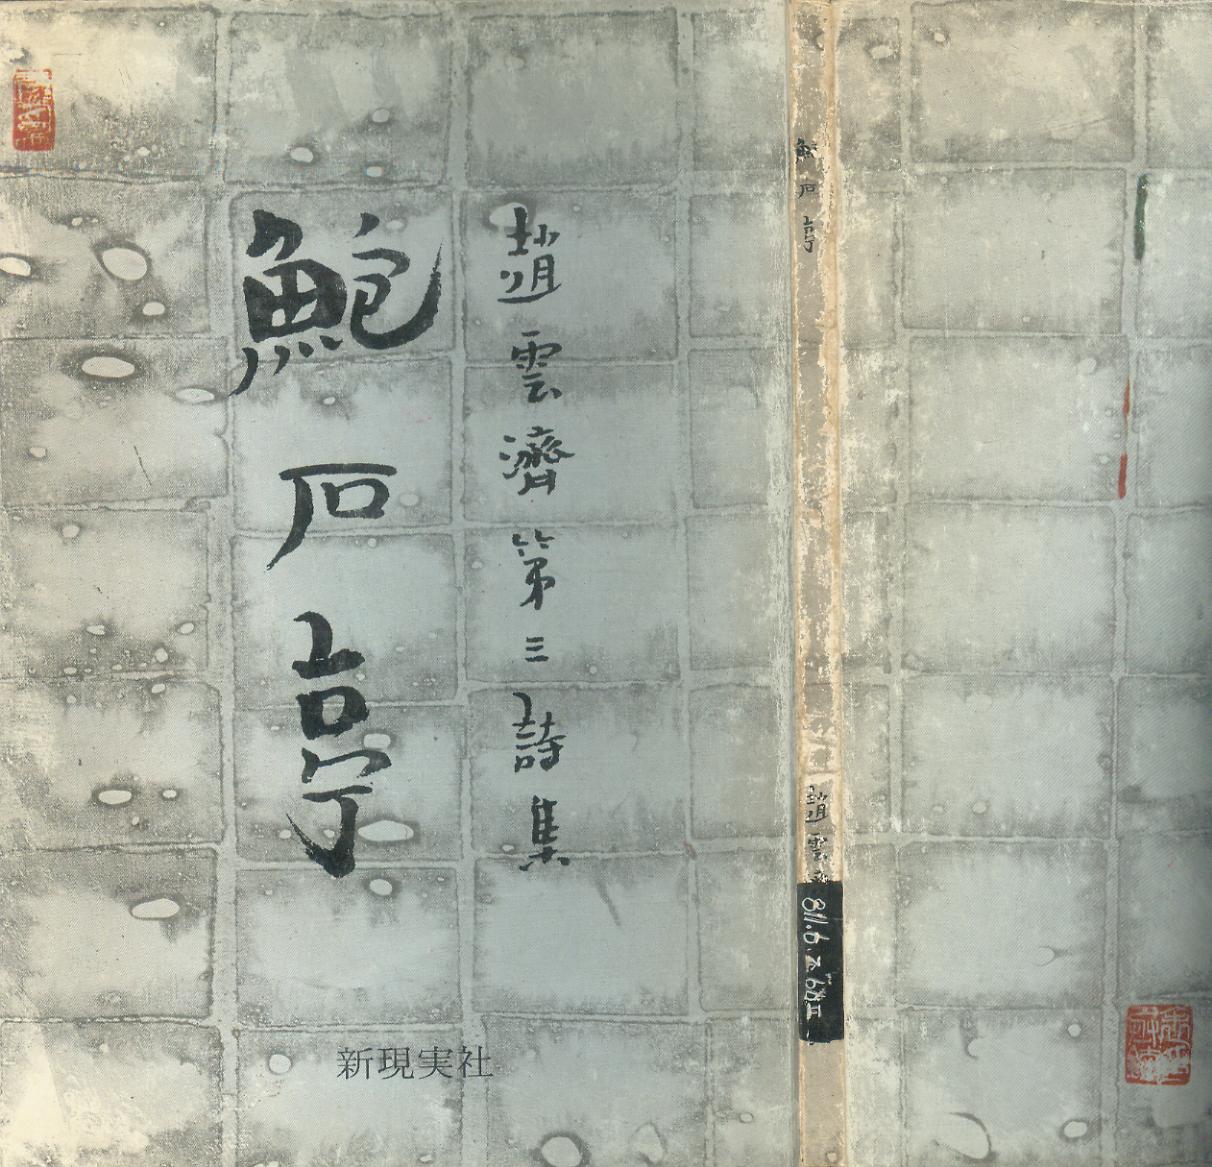 趙雲濟第三詩集
鮑石亭
新現実社
鮑石亭
趙雲
811.6